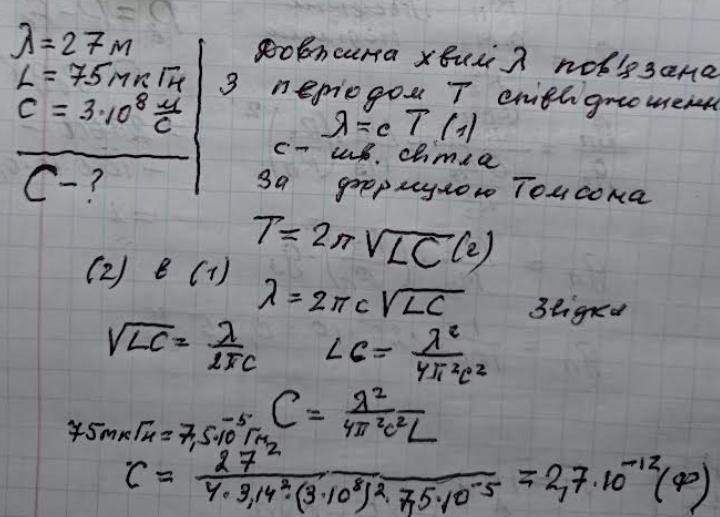 λ = 27 м
L = 75 мкГн
C = 3·10⁸ м/с
C - ?
Довжина хвилі λ пов'язана
з періодом T співвідношенн
λ = c T (1)
c - шв. світла
За формулою Томсона
T = 2π √LC (2)
(2) в (1)
λ = 2πc √LC Звідки
√LC = λ/2πc LC = λ²/4π²c²
C = λ²/4π²c²L
75мкГн = 7,5·10⁻⁵ Гн
C = 27²/4·3,14²·(3·10⁸)²·7,5·10⁻⁵ = 2,7·10⁻¹² (Ф)